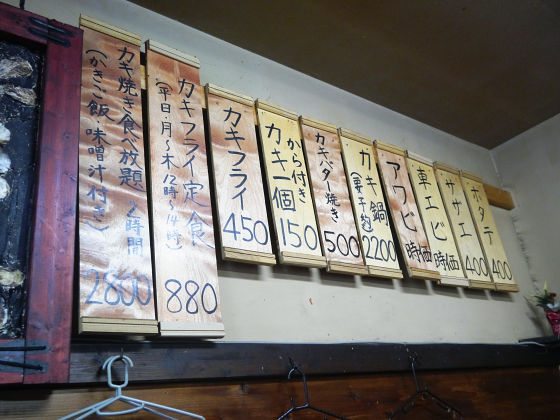 カキ焼き食べ放題 2時間
(かきご飯・味噌汁付き)
2800
カキフライ定食
(平日・月〜木 12時〜14時)
880
カキフライ
450
から付き
カキ一個
150
カキバター焼き
500
カキ鍋
2200
アワビ
時価
車エビ
時価
サザエ
400
ホタテ
400